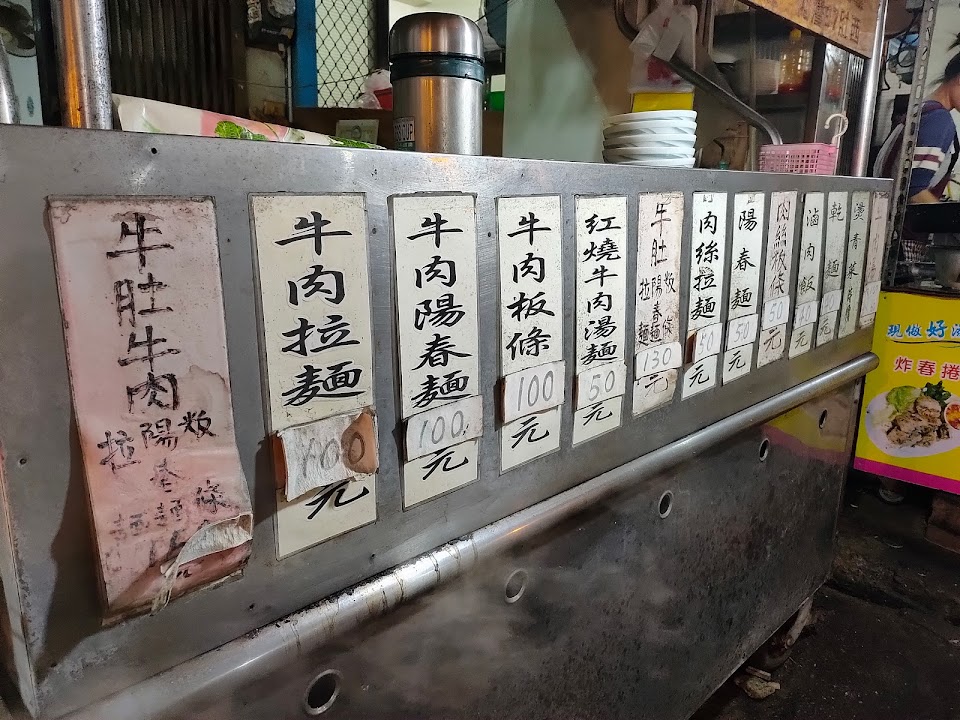 牛肚牛肉
拉陽粄
春
麵麵條
牛肉拉麵
100
元
牛肉陽春麵
100
元
牛肉粄條
100
元
紅燒牛肉湯麵
50
元
牛肚
拉陽粄
春
麵麵條
130
元
肉絲拉麵
50
元
陽春麵
50
元
肉絲粄條
50
元
滷肉飯
40
元
乾麵
元
燙青菜
現做好
炸春捲